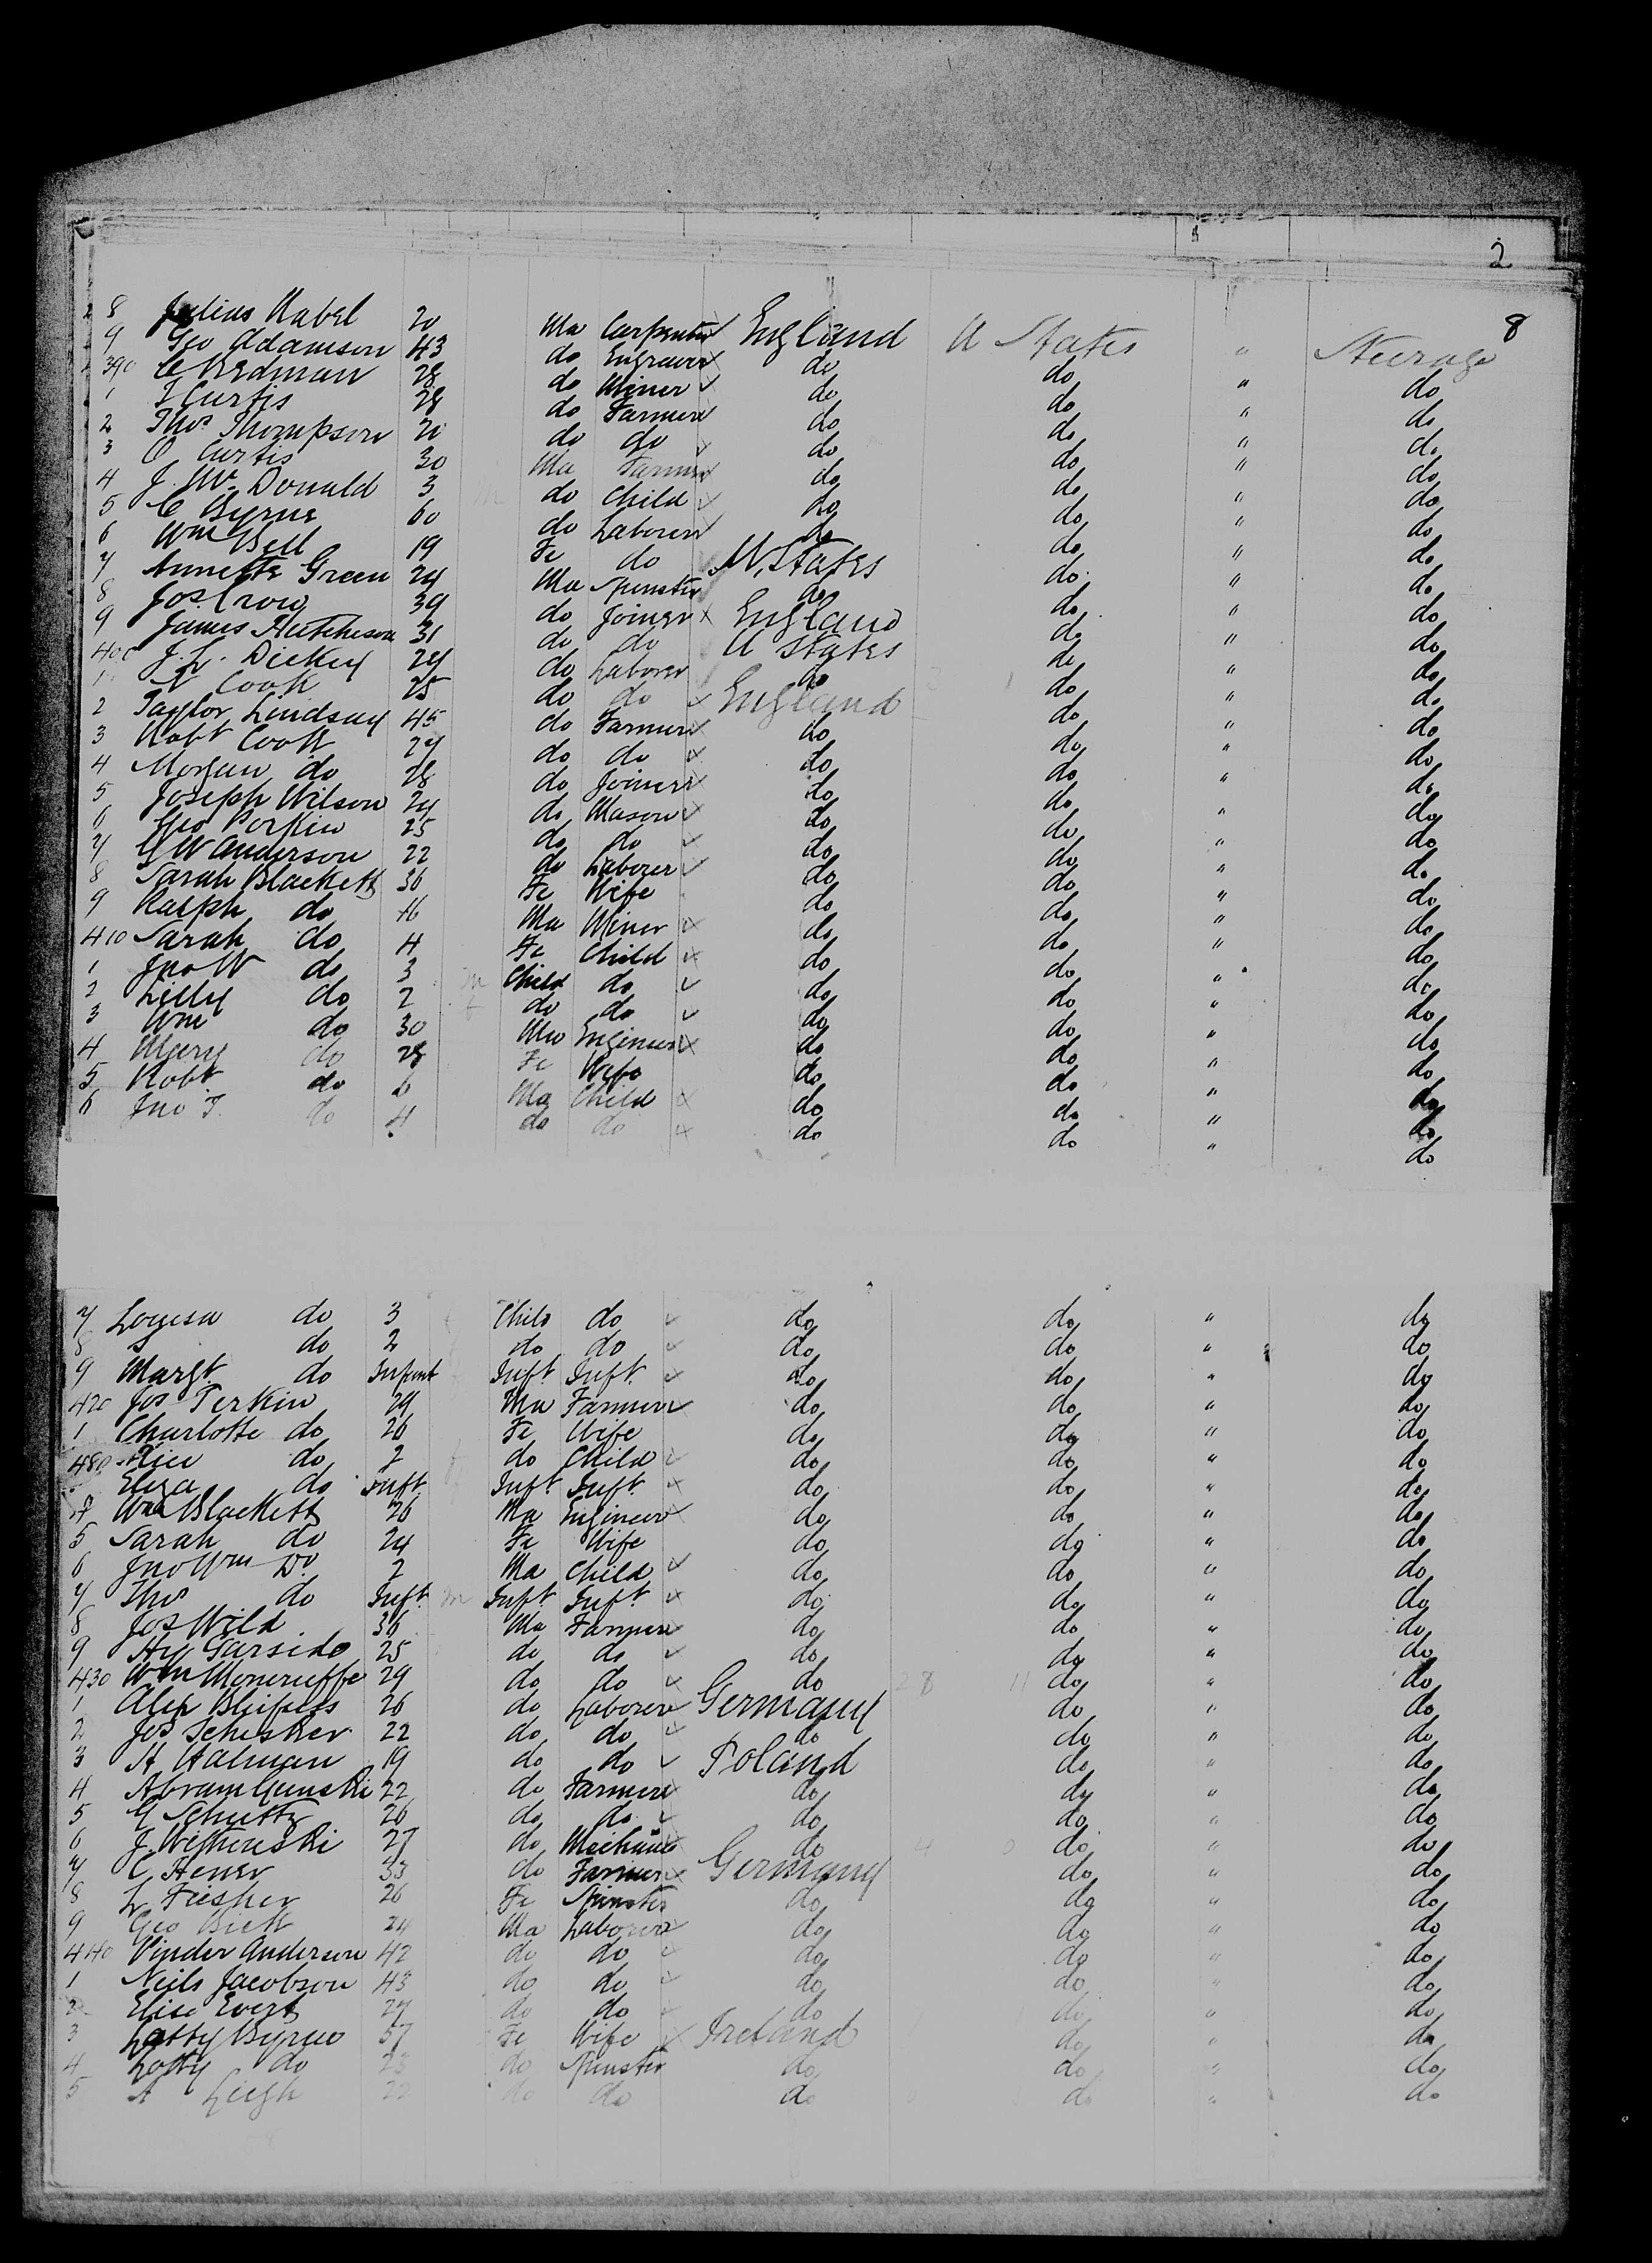 2
8
8 Julius Nabel 20 Ma Carpenter England U States " Steerage
9 Geo Adamson 43 do Engraver do do " do
390 C Redman 28 do Miner do do " do
1 T Curtis 28 do Farmer do do " do
2 Thos Thompson 20 do do do do " do
3 O Curtis 30 Ma Farmer do do " do
4 J. Mc Donald 3 do Child do do " do
5 C Byrne 60 do Laborer do do " do
6 Wm Bell 19 Fe do U. States do " do
7 Annette Green 24 Ma Spinster do do " do
8 Jos. Crow 39 do Joiner England do " do
9 James Hutcheson 31 do do U States do " do
400 J. L. Dickey 24 do Laborer do do " do
1 Cook 25 do do England do " do
2 Taylor Lindsay 45 do Farmer do do " do
3 Robt Cook 27 do do do do " do
4 Morgan do 28 do Joiner do do " do
5 Joseph Wilson 24 do Mason do do " do
6 Geo Perkin 25 do do do do " do
7 G W Anderson 22 do Laborer do do " do
8 Sarah Blackett 36 Fe Wife do do " do
9 Ralph do 46 Ma Miner do do " do
410 Sarah do 4 Fe Child do do " do
1 Jno W do 3 m Child do do do " do
2 Lilly do 2 f do do do do " do
3 Wm do 30 Ma Engineer do do " do
4 Mary do 28 Fe Wife do do " do
5 Robt do 6 Ma Child do do " do
6 Jno T. do 4 do do do do " do
7 Louisa do 3 Child do do do " do
8 S do 2 do do do do " do
9 Margt. do Infant Inft Inft. do do " do
420 Jos Perkin 29 Ma Farmer do do " do
1 Charlotte do 26 Fe Wife do do " do
480 do 2 do Child do do " do
Eliza do Inft. Inft Inft. do do " do
4 Wm Blackett 26 Ma Engineer do do " do
5 Sarah do 24 Fe Wife do do " do
6 Jno Wm Do. 2 Ma Child do do " do
7 Thos do Inft. m Inft. Inft do do " do
8 Jos Wild 36 Ma Farmer do do " do
9 Hy Garside 25 do do do do " do
430 Wm Moncrieffe 29 do do do 28 11 do " do
1 Alex 26 do Laborer Germany do " do
2 Jos Schisker 22 do do do do " do
3 H Halman 19 do do Poland do " do
4 Abram 22 do Farmer do do " do
5 G Schultz 26 do do do do " do
6 J. 27 do Mechanic do 4 0 do " do
7 C Hener 33 do Farmer Germany do " do
8 L Fiesher 26 Fe Spinster do do " do
9 Geo Bick 24 Ma Laborer do do " do
440 Pinder Anderson 42 do do do do " do
1 Neils Jacobson 43 do do do do " do
2 Elise Evert 27 do do do do " do
3 Latty Byrne 57 Fe Wife Ireland do " do
4 Lotty do 23 do Spinster do do " do
5 A Leigh 22 do do do do " do